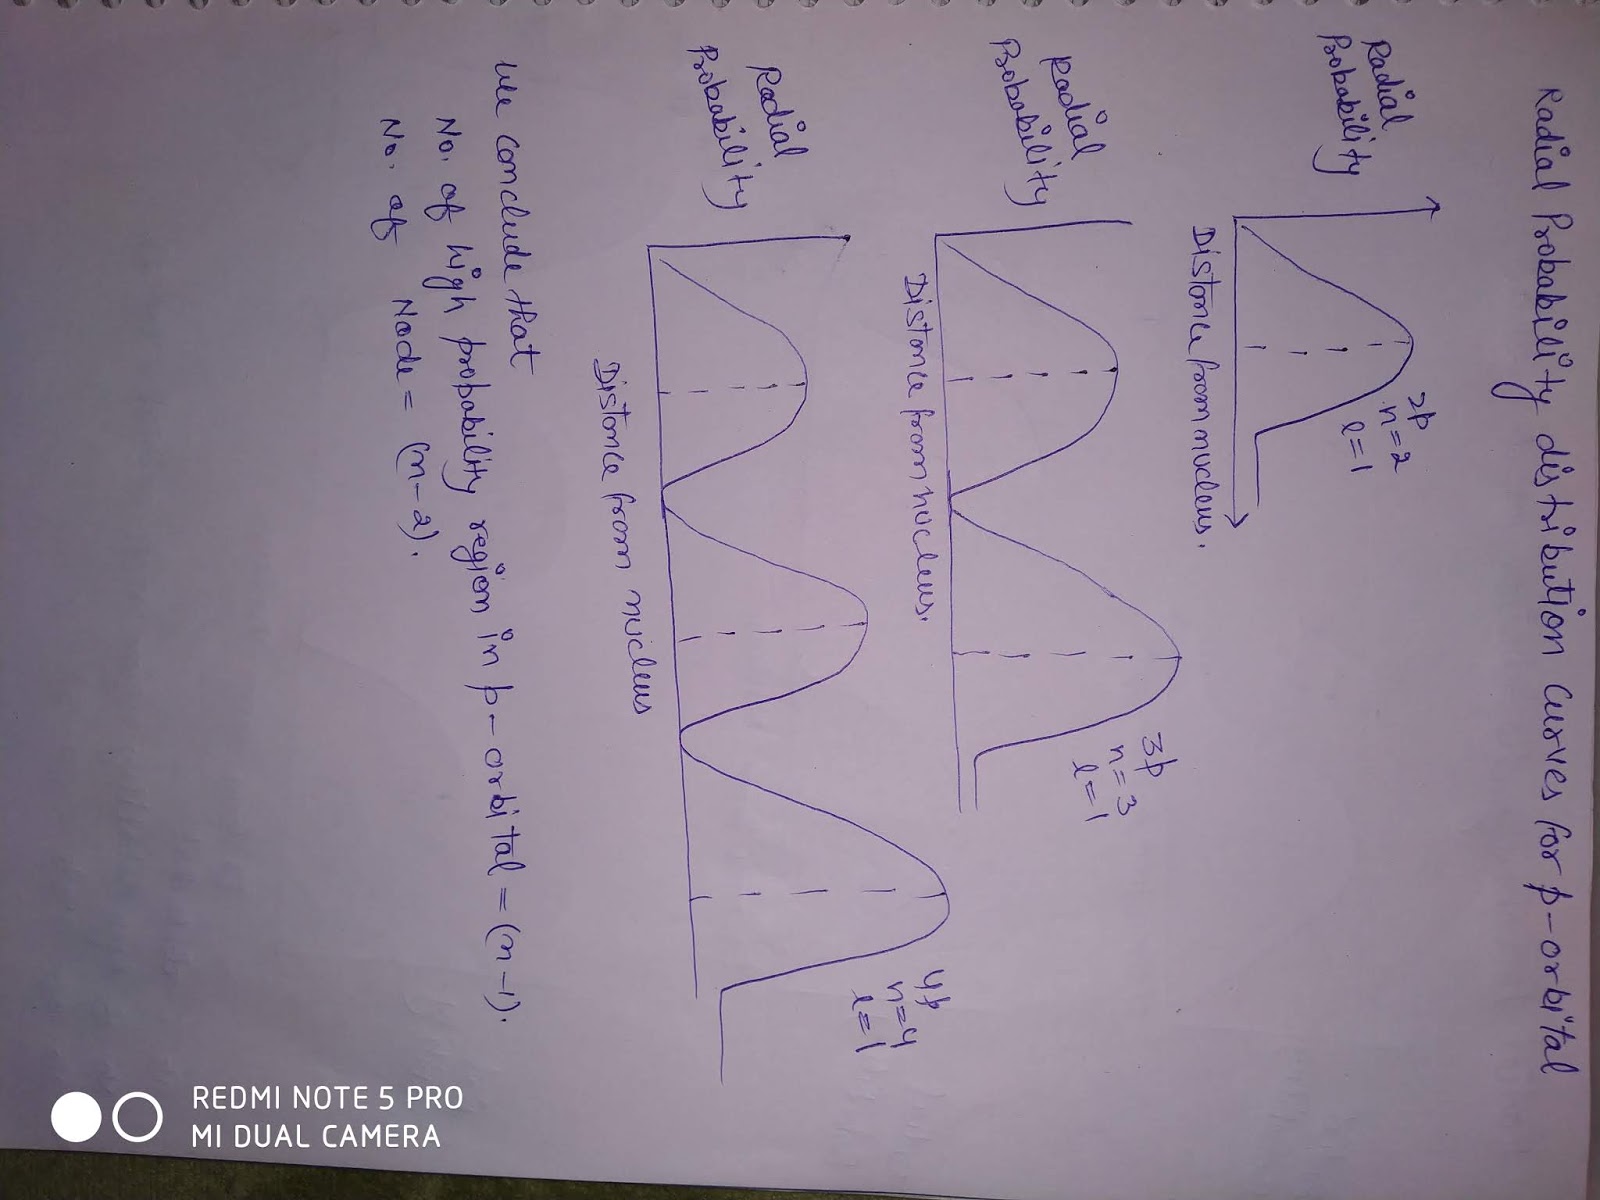 Radial Probability distribution Curves for p-orbital
Radial
Probability
2p
n=2
l=1
Distance from nucleus.
Radial
Probability
3p
n=3
l=1
Distance from nucleus.
Radial
Probability
4p
n=4
l=1
Distance from nucleus
We conclude that
No. of high probability region in p-orbital = (n-1).
No. of Node = (n-2).
REDMI NOTE 5 PRO
MI DUAL CAMERA